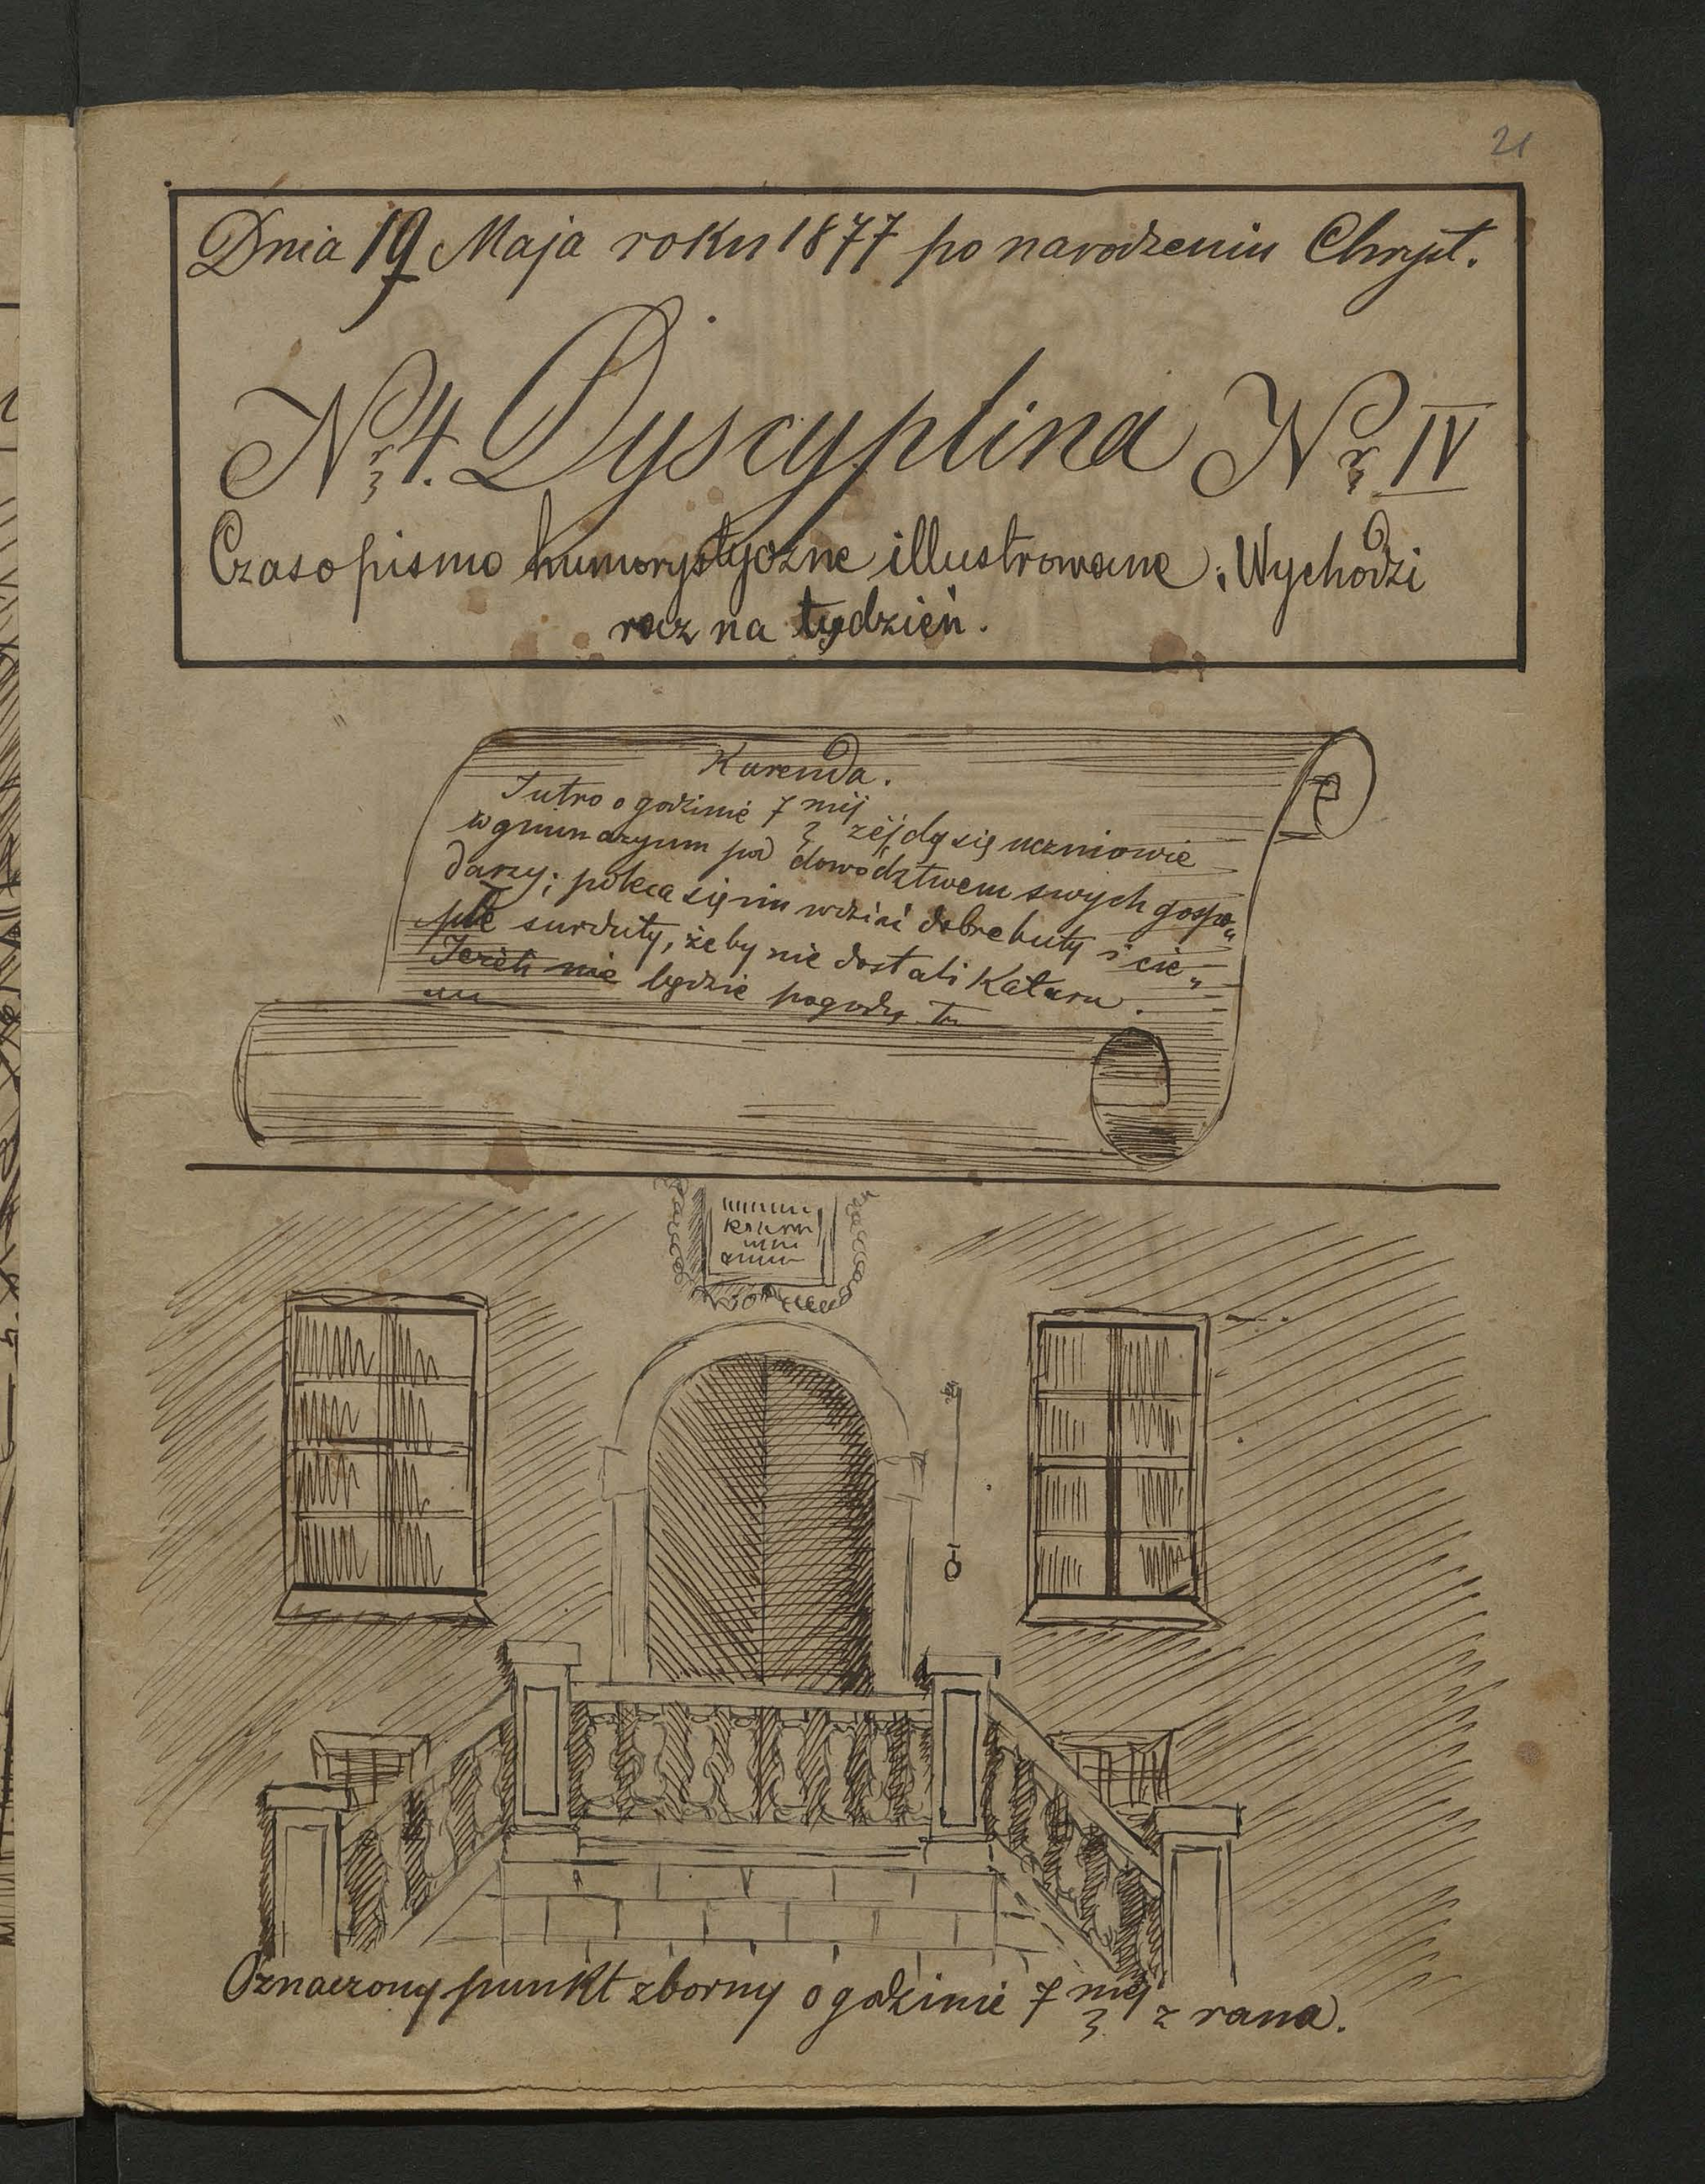 21
Dnia 19 Maja roku 1877 po narodzeniu Chryst.
Nr 4. Dyscyplina Nr IV
Czasopismo humorystyczne illustrowane; Wychodzi
raz na tydzień.
Kurenda.
Jutro o godzinie 7 méj zéjdą się uczniowie
w gimnazyum pod dowództwem swych gospo„
darzy; poleca się im wdziać dobre buty i cie„
płe surduty, żeby nie dostali Kataru.
Jeżeli nie będzie pogody to
Oznaczony punkt zborny o godzinie 7 méj z rana.